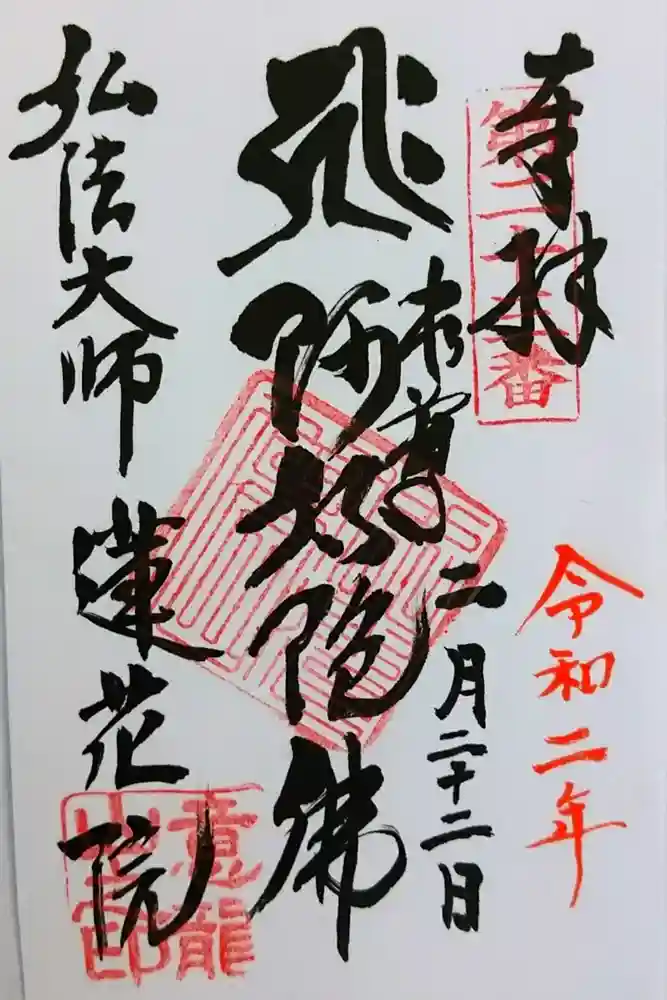 奉拝
第二十三番
令和二年
二月二十二日
本尊
阿弥陀佛
弘法大師
蓮花院